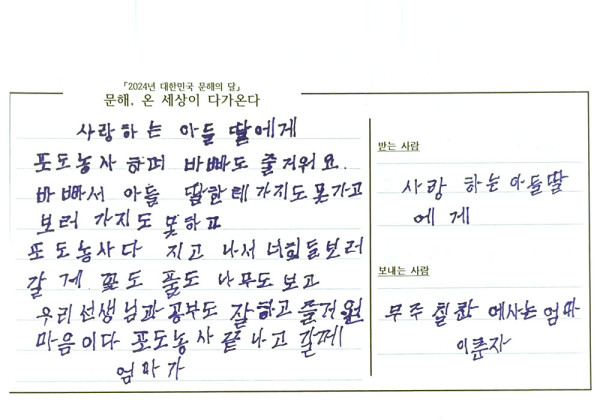 『2024년 대한민국 문해의 달』
문해, 온 세상이 다가온다
사랑하는 아들 딸에게
포도농사 하며 바빠도 즐거워요.
바빠서 아들 딸한테 가지도 못가고
보러 가지도 못하고
포도농사다 지고 나서 너희들보러
갈게. 꽃도 풀도 나무도 보고
우리선생님과 공부도 잘하고 즐거원
마음이다 포도농사 끝나고 갈께
엄마가
받는 사람
사랑 하는아들딸
에게
보내는 사람
무주 에사는 엄마